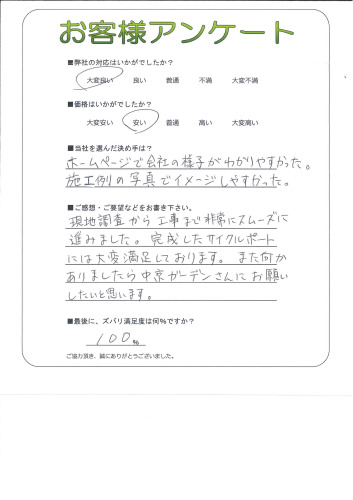 お客様アンケート
■弊社の対応はいかがでしたか?
大変良い 良い 普通 不満 大変不満
■価格はいかがでしたか?
大変安い 安い 普通 高い 大変高い
■当社を選んだ決め手は?
ホームページで会社の様子がわかりやすかった。
施工例の写真でイメージしやすかった。
■ご感想・ご要望などをお書き下さい。
現地調査から工事まで非常にスムーズに
進みました。完成したサイクルポート
には大変満足しております。また何か
ありましたら中京ガーデンさんにお願い
したいと思います。
■最後に、ズバリ満足度は何%ですか?
100%
ご協力頂き、誠にありがとうございました。